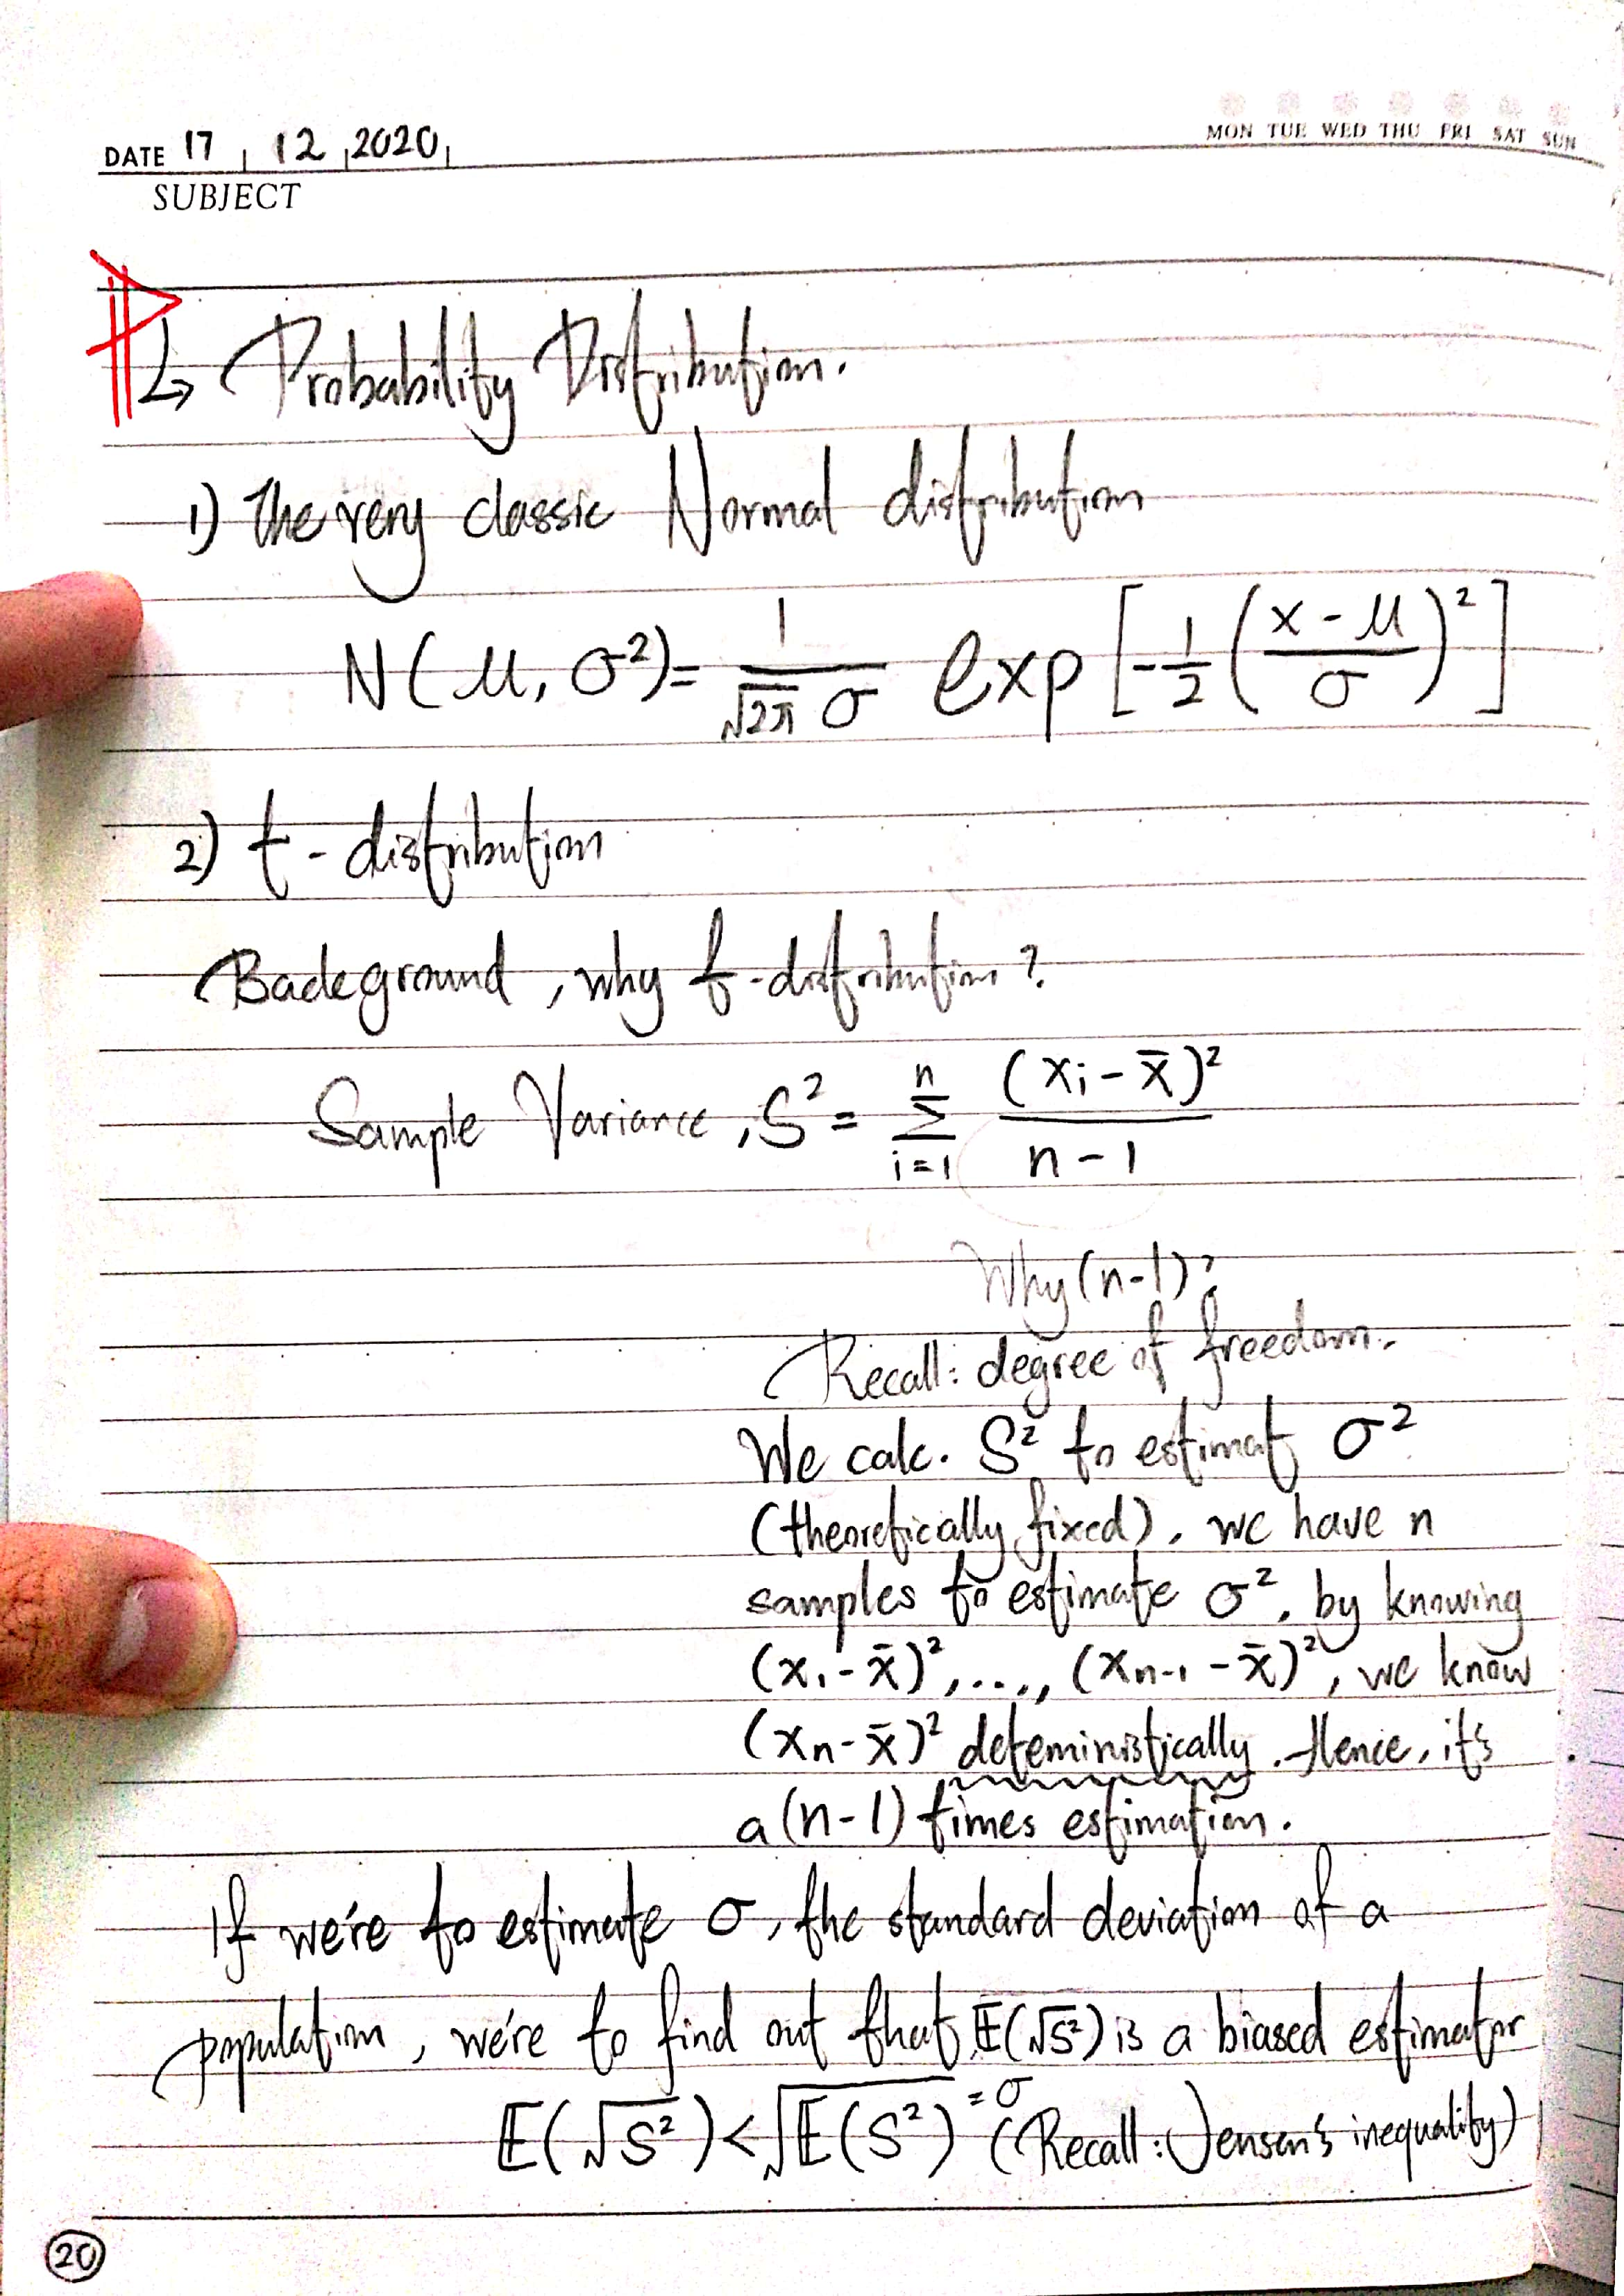 MON TUE WED THU FRI SAT SUN
DATE 17 12 2020
SUBJECT
P ↳ Probability Distribution.
1) The very classic Normal distribution
N(μ, σ²) = 1/(√2π σ) exp [-1/2 ((x-μ)/σ)²]
2) t-distribution
Background, why t-distribution?
Sample Variance, S² = Σ_{i=1}^{n} (xᵢ - x̄)²/(n-1)
Why (n-1)?
Recall: degree of freedom.
We calc. S² to estimat σ²
(theoretically fixed), we have n
samples to estimate σ², by knowing
(x₁-x̄)²,..., (xₙ₋₁ - x̄)², we know
(xₙ-x̄)² deteministically. Hence, it's
a (n-1) times estimation.
If we're to estimate σ, the standard deviation of a
population, we're to find out that E(√S²) is a biased estimator
E(√S²) < √E(S²) = σ (Recall: Jensen's inequality)
20